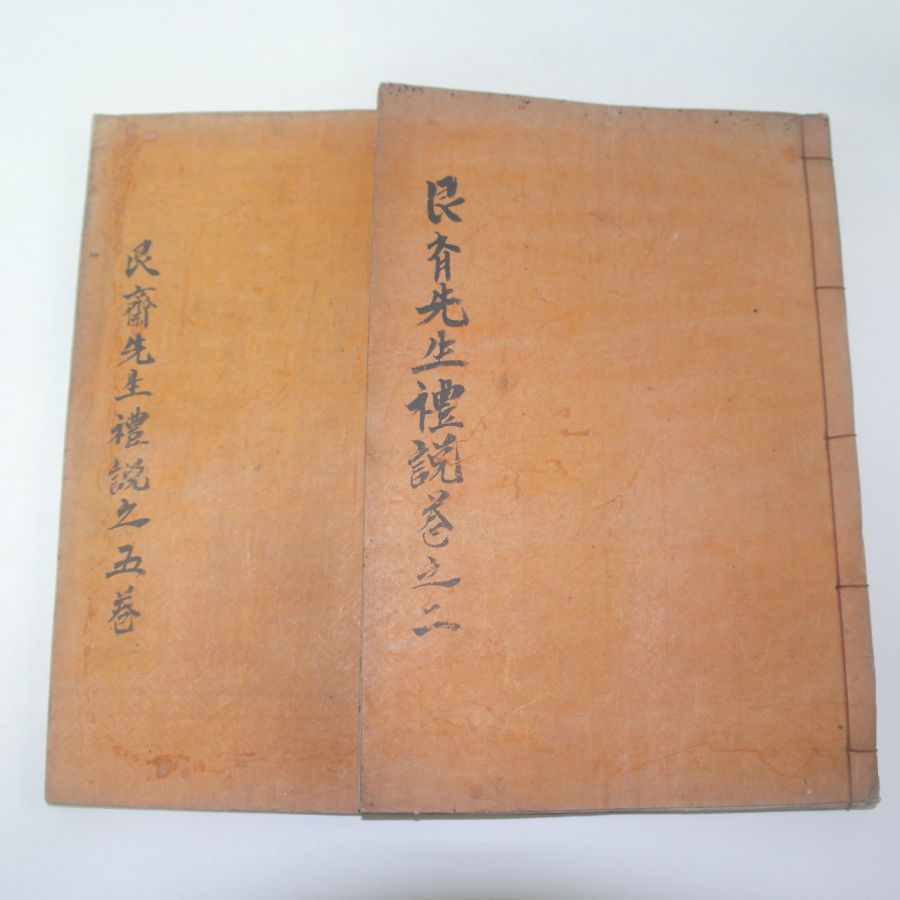 艮斎先生禮說卷之二
艮齋先生禮說之五卷